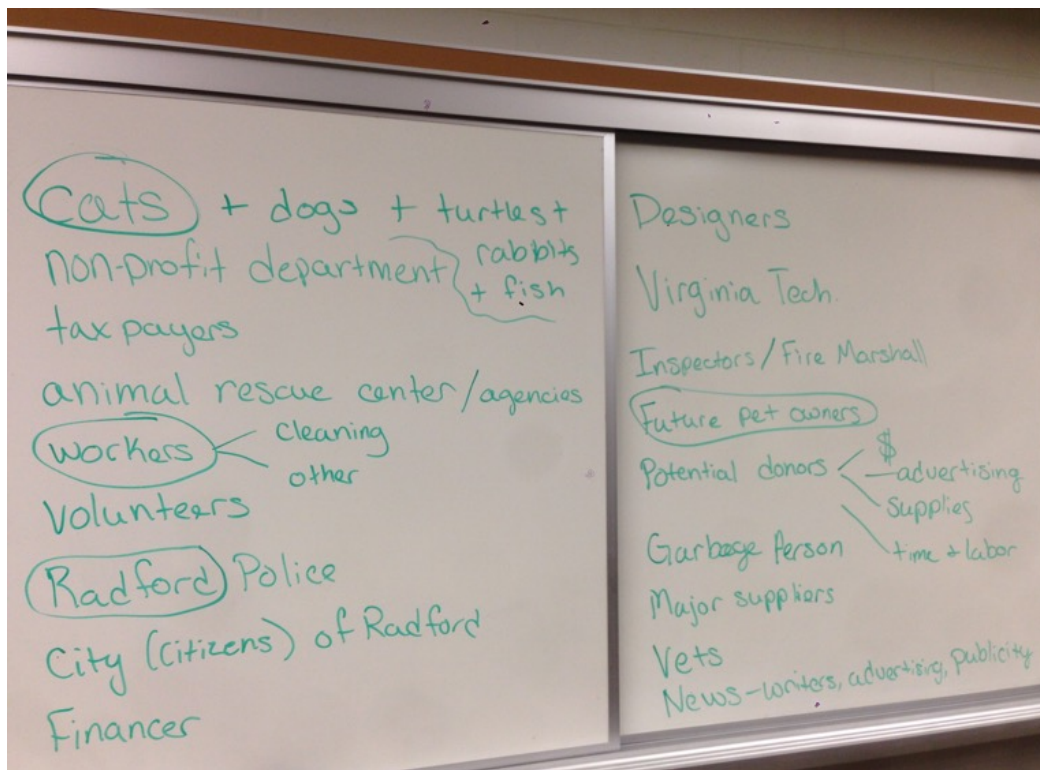 Cats + dogs + turtles +
rabbits
+ fish
non-profit department
tax payers
animal rescue center/agencies
workers
cleaning
other
Volunteers
Radford Police
City (citizens) of Radford
Financer
Designers
Virginia Tech.
Inspectors/Fire Marshall
Future pet owners
Potential donors
$
advertising
supplies
time + labor
Garbage Person
Major suppliers
Vets
News-writers, advertising, publicity